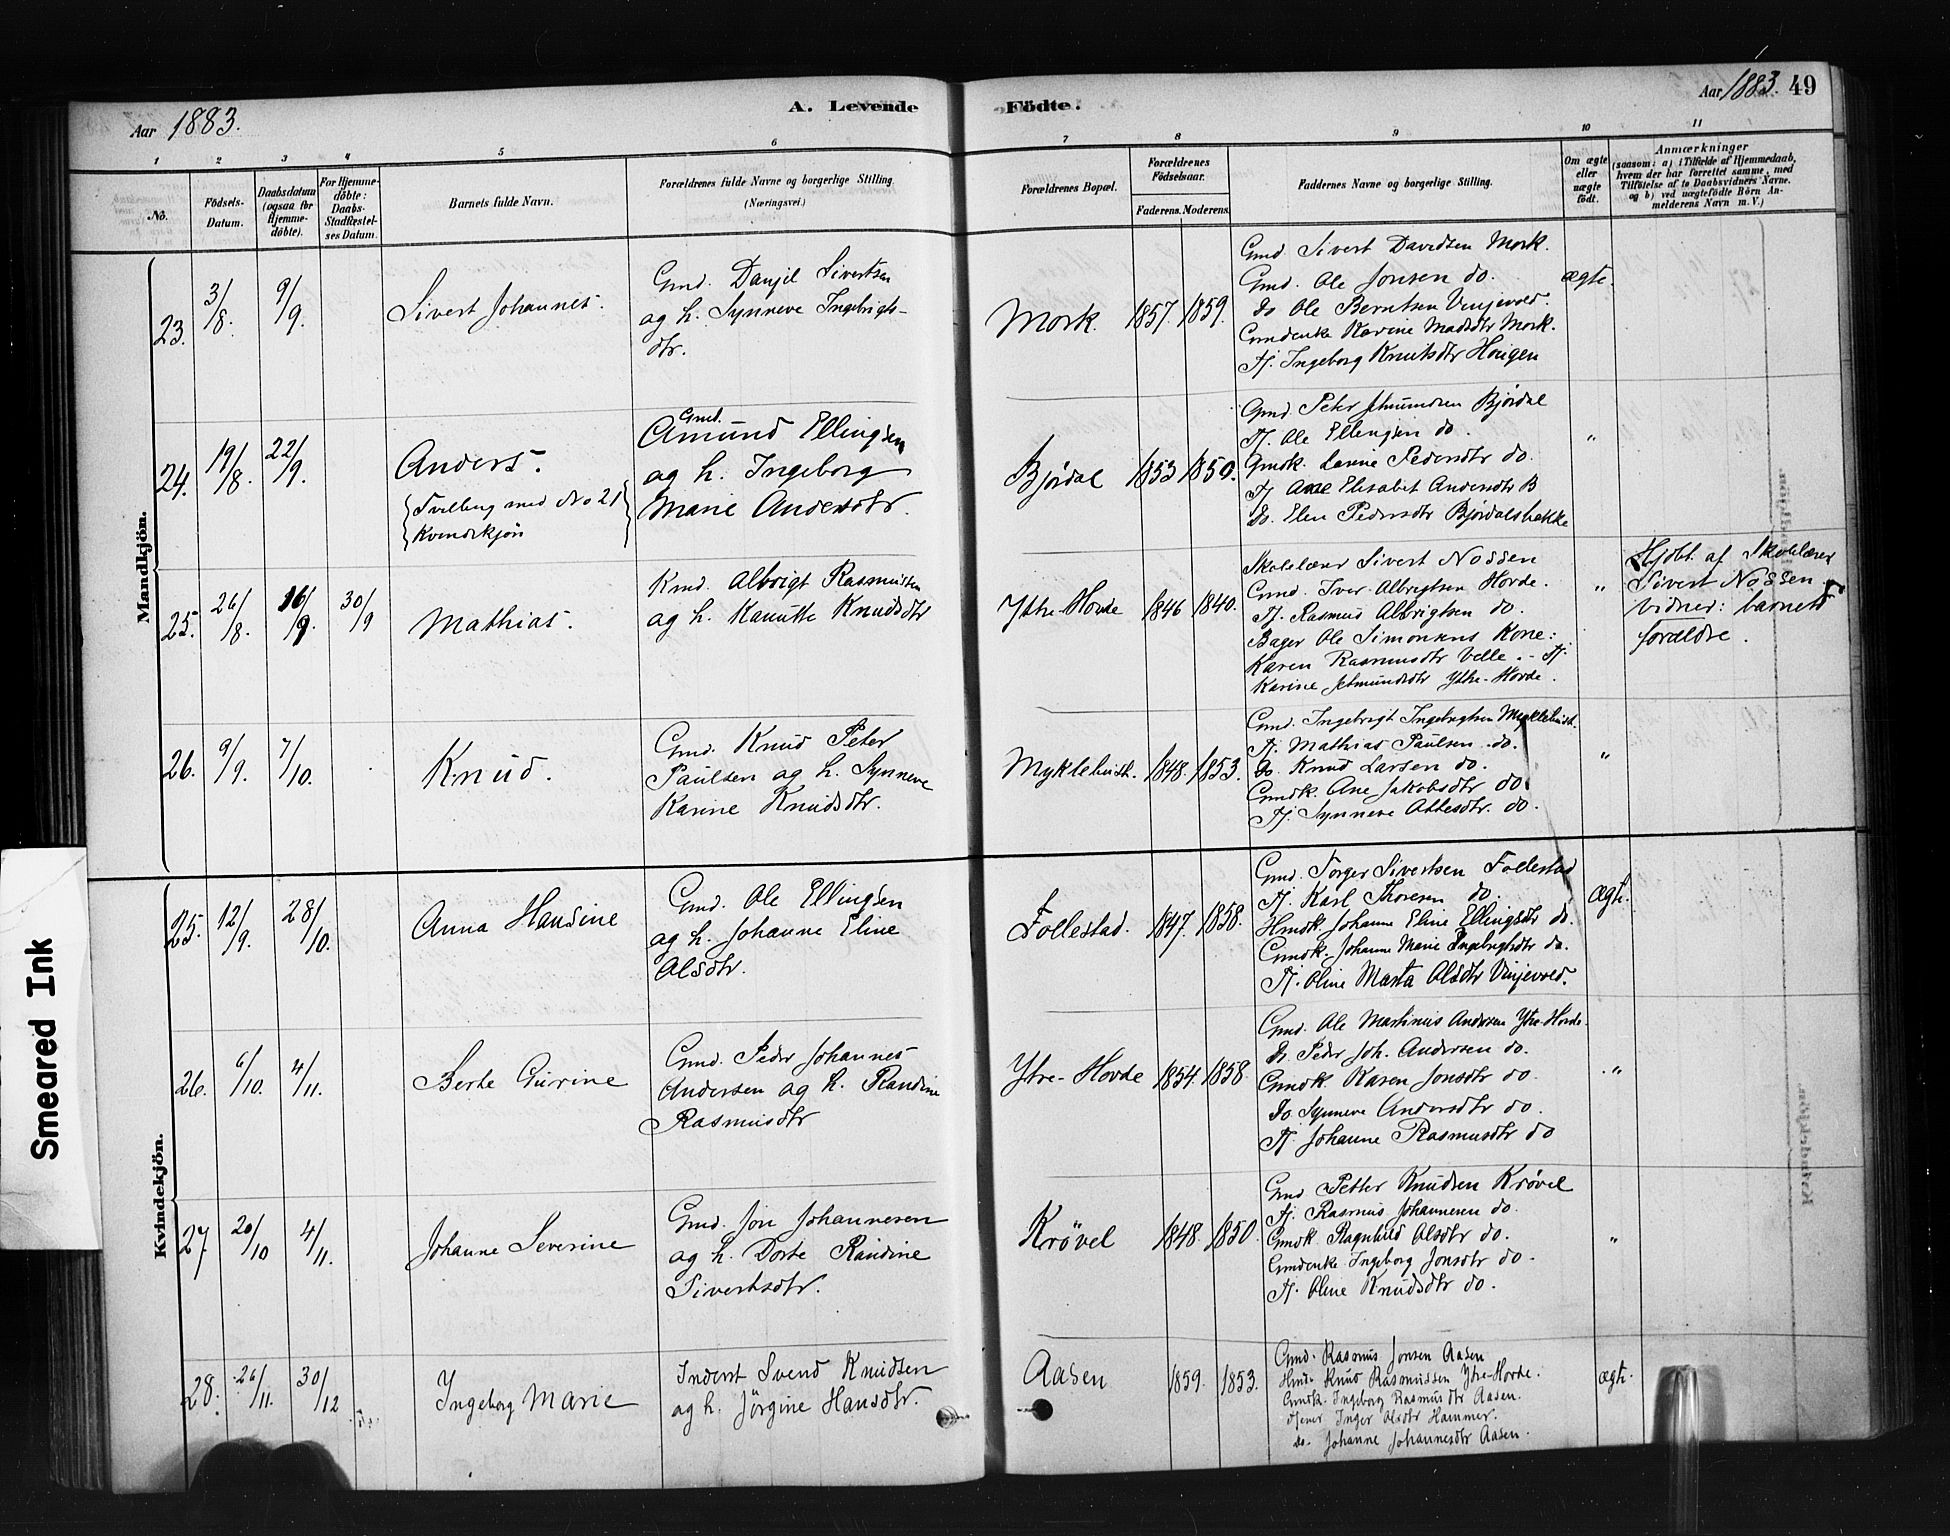 Aar 1883.
A. Levende Födte.
Aar 1883. 49
1 2 3 4 5 6 7 8 9 10 11
No.
Födsels-Datum.
Daabsdatum (ogsaa for Hjemme-döbte).
For Hjemme-döbte: Daabs-Stadfæstel-ses Datum.
Barnets fulde Navn.
Forældrenes fulde Navne og borgerlige Stilling. (Næringsvei.)
Forældrenes Bopæl.
Forældrenes Födselsaar.
Faderens. Moderens.
Faddernes Navne og borgerlige Stilling.
Om ægte eller uægte födt.
Anmærkninger
(saasom: a) i Tilfælde af Hjemmedaab,
hvem der har forrettet samme, med
Tilföielse af to Daabsvidners Navne.
og b) ved uægtefödte Börn An-
melderens Navn m. V.)
Mandkjön.
23. 3/8. 9/9.
Sivert Johannes.
Gmd. Danjel Sivertsen
og h. Synneve Ingebrigts-
dtr.
Mork. 1857. 1859.
Gmd. Sivert Davidsen Mork.
Gmd. Ole Jonsen do.
Do Ole Berntsen Vinjevold.
Gmdenke Karine Madsdtr Mork.
Tj. Ingeborg Knutsdtr Hougen
ægte.
24. 19/8. 22/9.
Anders.
{Tvilling med No 21
Kvindekjön}
Gmd.
Amund Ellingsen
og h. Ingeborg
Marie Andersdtr.
Bjørdal 1853 1850.
Gmd. Peter Jetmundsen Bjørdal
Tj. Ole Ellingsen do.
Gmdk. Lavine Pedersdtr do.
Tj. Ane Elisabet Andersdtr B
Do. Elen Pedersdtr Bjørdalsbakke
"
25. 26/8. 16/9. 30/9
Mathias.
Kmd. Albrigt Rasmussen
og h. Kanutte Knudsdtr
Ytre-Hovde 1846 1840.
Skolelærer Sivert Nossen
Gmd. Iver Albrigtsen Hovde.
Tj. Rasmus Albrigtsen do.
Bager Ole Simonsens Kone:
Karen Rasmusdtr Velle. - Tj.
Karine Jetmundsdtr Ytre-Hovde.
"
Hjdbt. af Skolelærer
Sivert Nossen.
Vidner: barnets
forældre.
26. 9/9. 7/10.
Knud.
Gmd. Knud Peter
Paulsen og h. Synneve
Karine Knudsdtr.
Myklebust. 1848. 1853.
Gmd. Ingebrigt Ingebrigtsen Myklebust.
Tj. Mathias Paulsen do.
Do. Knud Larsen do.
Gmdk. Ane Jakobsdtr do.
Tj. Synneve Abbesdtr. do.
"
Kvindekjön.
25. 12/9. 28/10.
Anna Hansine
Gmd. Ole Ellingsen
og h. Johanne Eline
Olsdtr.
Follestad. 1847. 1858.
Gmd. Torger Sivertsen Follestad
Tj. Karl Thoresen do.
Hmdk. Johanne Eline Ellingsdtr do.
Gmdk. Johanne Marie Ingebrigtsdtr do.
Tj. Oline Marta Olsdtr Vinjevold.
Ægte.
26. 6/10. 4/11.
Berte Gurine
Gmd. Peder Johannes
Andersen og h. Randine
Rasmusdtr
Ytre-Hovde 1854. 1858.
Gmd. Ole Martinus Andersen Ytre-Hovde.
Do. Peder Joh. Andersen do.
Gmdk Karen Jonsdtr do.
Do Synneve Andersdtr do.
Tj. Johanne Rasmusdtr do
"
27. 20/10 4/11.
Johanne Severine
Gmd. Jon Johannesen
og h. Dorte Randine
Sivertsdtr.
Krövel 1848. 1850.
Gmd Petter Knudsen Krövel
Tj. Rasmus Johannesen do.
Gmdk. Ragnhild Olsdtr do.
Gmdenke Ingeborg Jonsdtr do.
Tj. Oline Knudsdtr do.
"
28. 26/11. 30/12
Ingeborg Marie
Inderst Svend Knudsen
og h. Jörgine Hansdtr.
Aasen 1859. 1853.
Gmd. Rasmus Jonsen Aasen
Hmd. Knud Rasmussen Ytre-Hovde.
Gmdk. Ingeborg Rasmusdtr Aasen.
Tjener Inger Olsdtr Hammer.
do. Johanne Johannesdtr Aasen.
ægte.
Smeared Ink